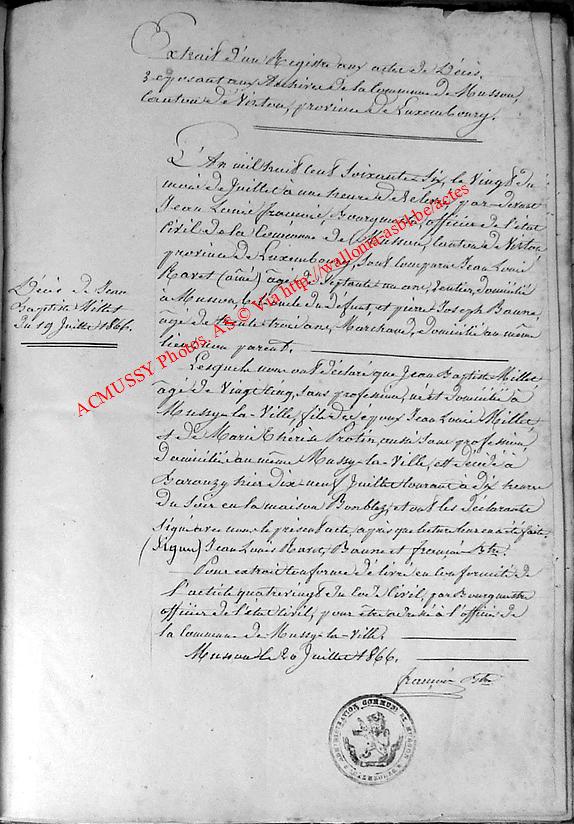 Extrait d'un Registre aux actes de Décès,
reposant aux Archives de la Commune de Musson,
Canton de Virton, province de Luxembourg.
L'An mil huit cent soixante six, le vingt du
mois de Juillet à une heure de relevée, par devant
Jean Louis François, Bourgmestre, officier de l'état
Civil de la Commune de Musson, Canton de Virton
province de Luxembourg, sont comparu Jean Louis
(aîné) âgé de Septante un ans, rentier, domicilié
à Musson, oncle du défunt, et pierre Joseph Baune,
âgé de trente trois ans, Marchand, domicilié au même
lieu, non parent.
Lesquels nous ont déclaré que Jean Baptiste Millet
âgé de Vingt cinq, sans profession, né et domicilié à
Mussy-la-Ville, fils des époux Jean Louis Millet
et de Marie Thérèse Protin, aussi sans profession
domiciliés au même Mussy-la-Ville, est décédé à
Baranzy hier dix neuf Juillet courant à dix heures
du Soir en la maison et ont les déclarants
signé avec nous le présent acte, après que lecture leur en a été faite.
(Signé) Jean Louis Baune et françois
Pour extrait conforme délivré en conformité de
l'article quatre vingt du Code Civil, par Bourgmestre
officier de l'état Civil, pour être adressé à l'officier de
la Commune de Mussy-la-Ville.
Musson le 20 Juillet 1866.
françois
Décès de Jean
Baptiste Millet
du 19 Juillet 1866.
ACMUSSY Photos. AS © Via http://wallonia-asbl.be/actes
ADMINISTRATION COMMUNALE DE MUSSON
LUXEMBOURG